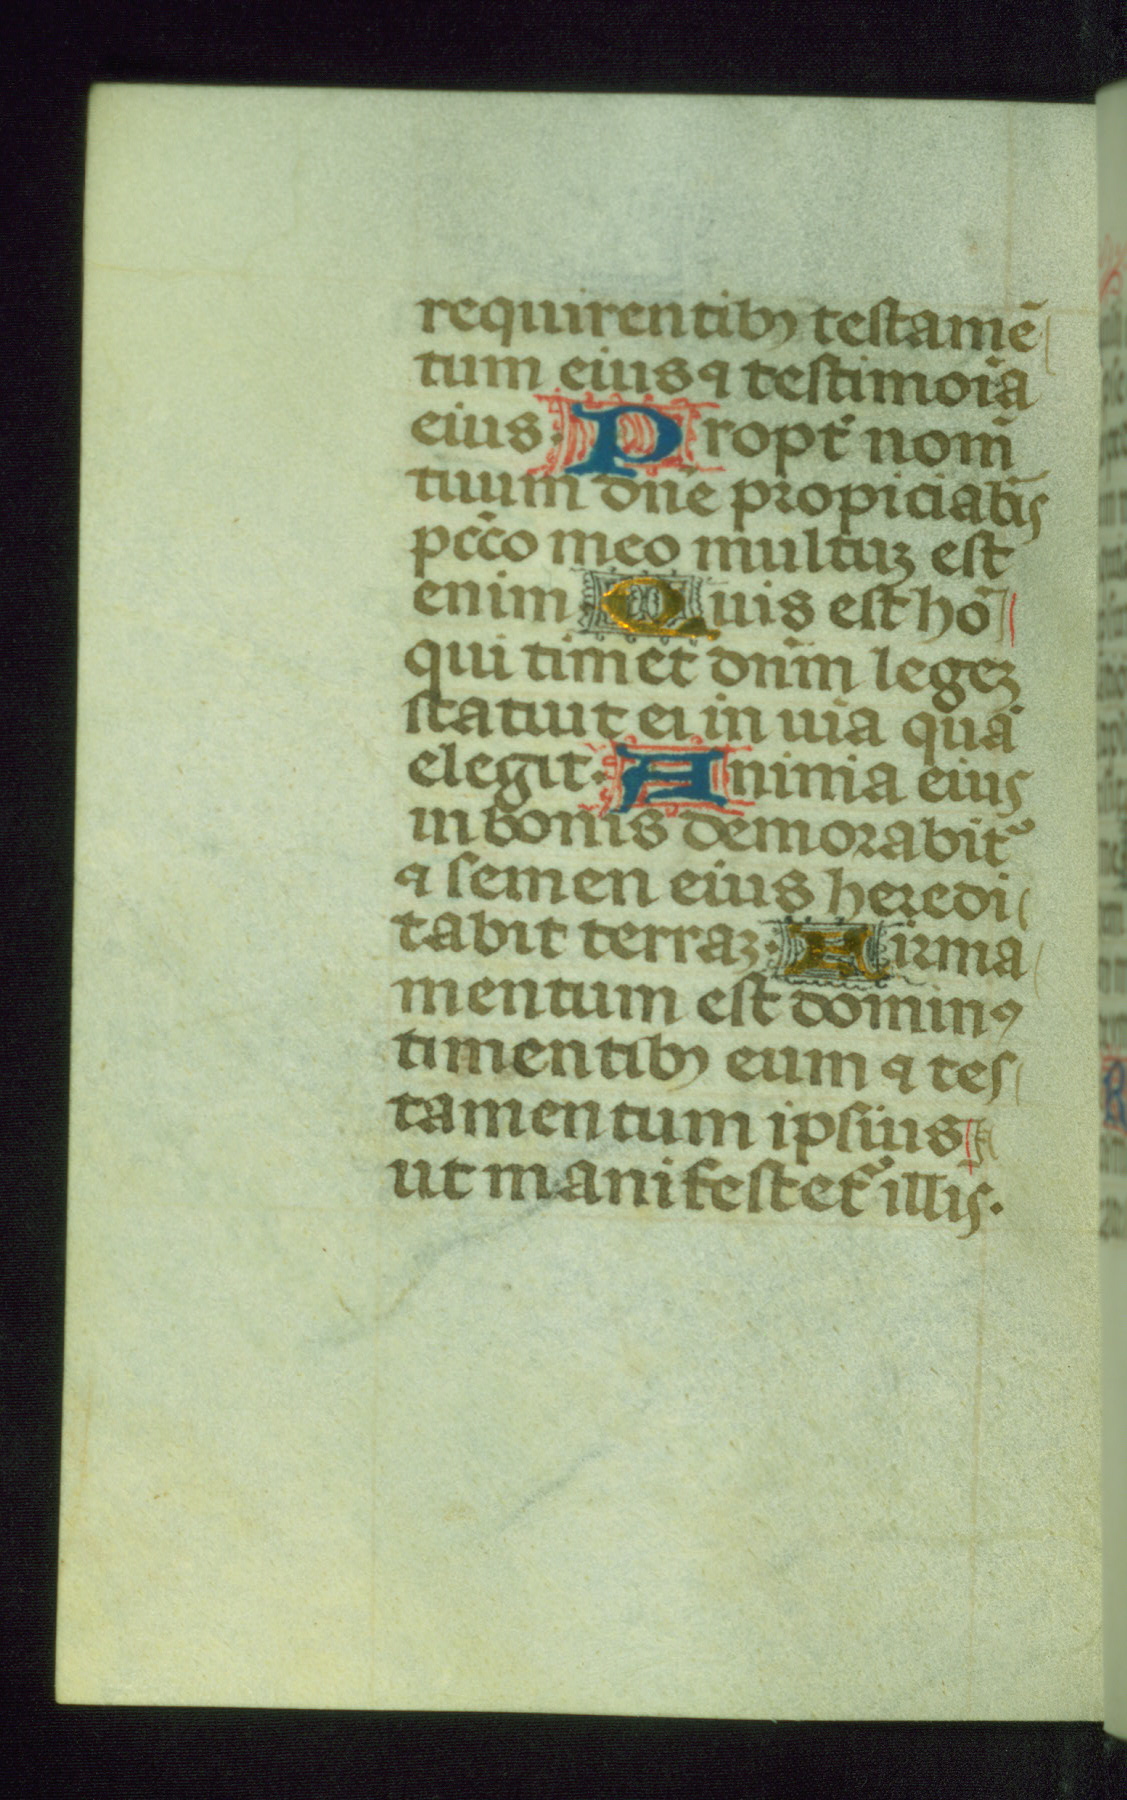 requirentibꝫ testamē
tum eius ⁊ testimoīa
eius. Propt̄ nom̄
tuum dn̄e propiciabis
pcc̄o meo multuꝫ est
enim. Quis est hō
qui timet dn̄m legeꝫ
statuit ei in uia quā
elegit. Anima eius
in bonis demorabit᷑
⁊ semen eius heredi
tabit terraꝫ. Firma
mentum est dominꝰ
timentibꝫ eum ⁊ tes
tamentum ipsius
ut manifestet᷑ illis.